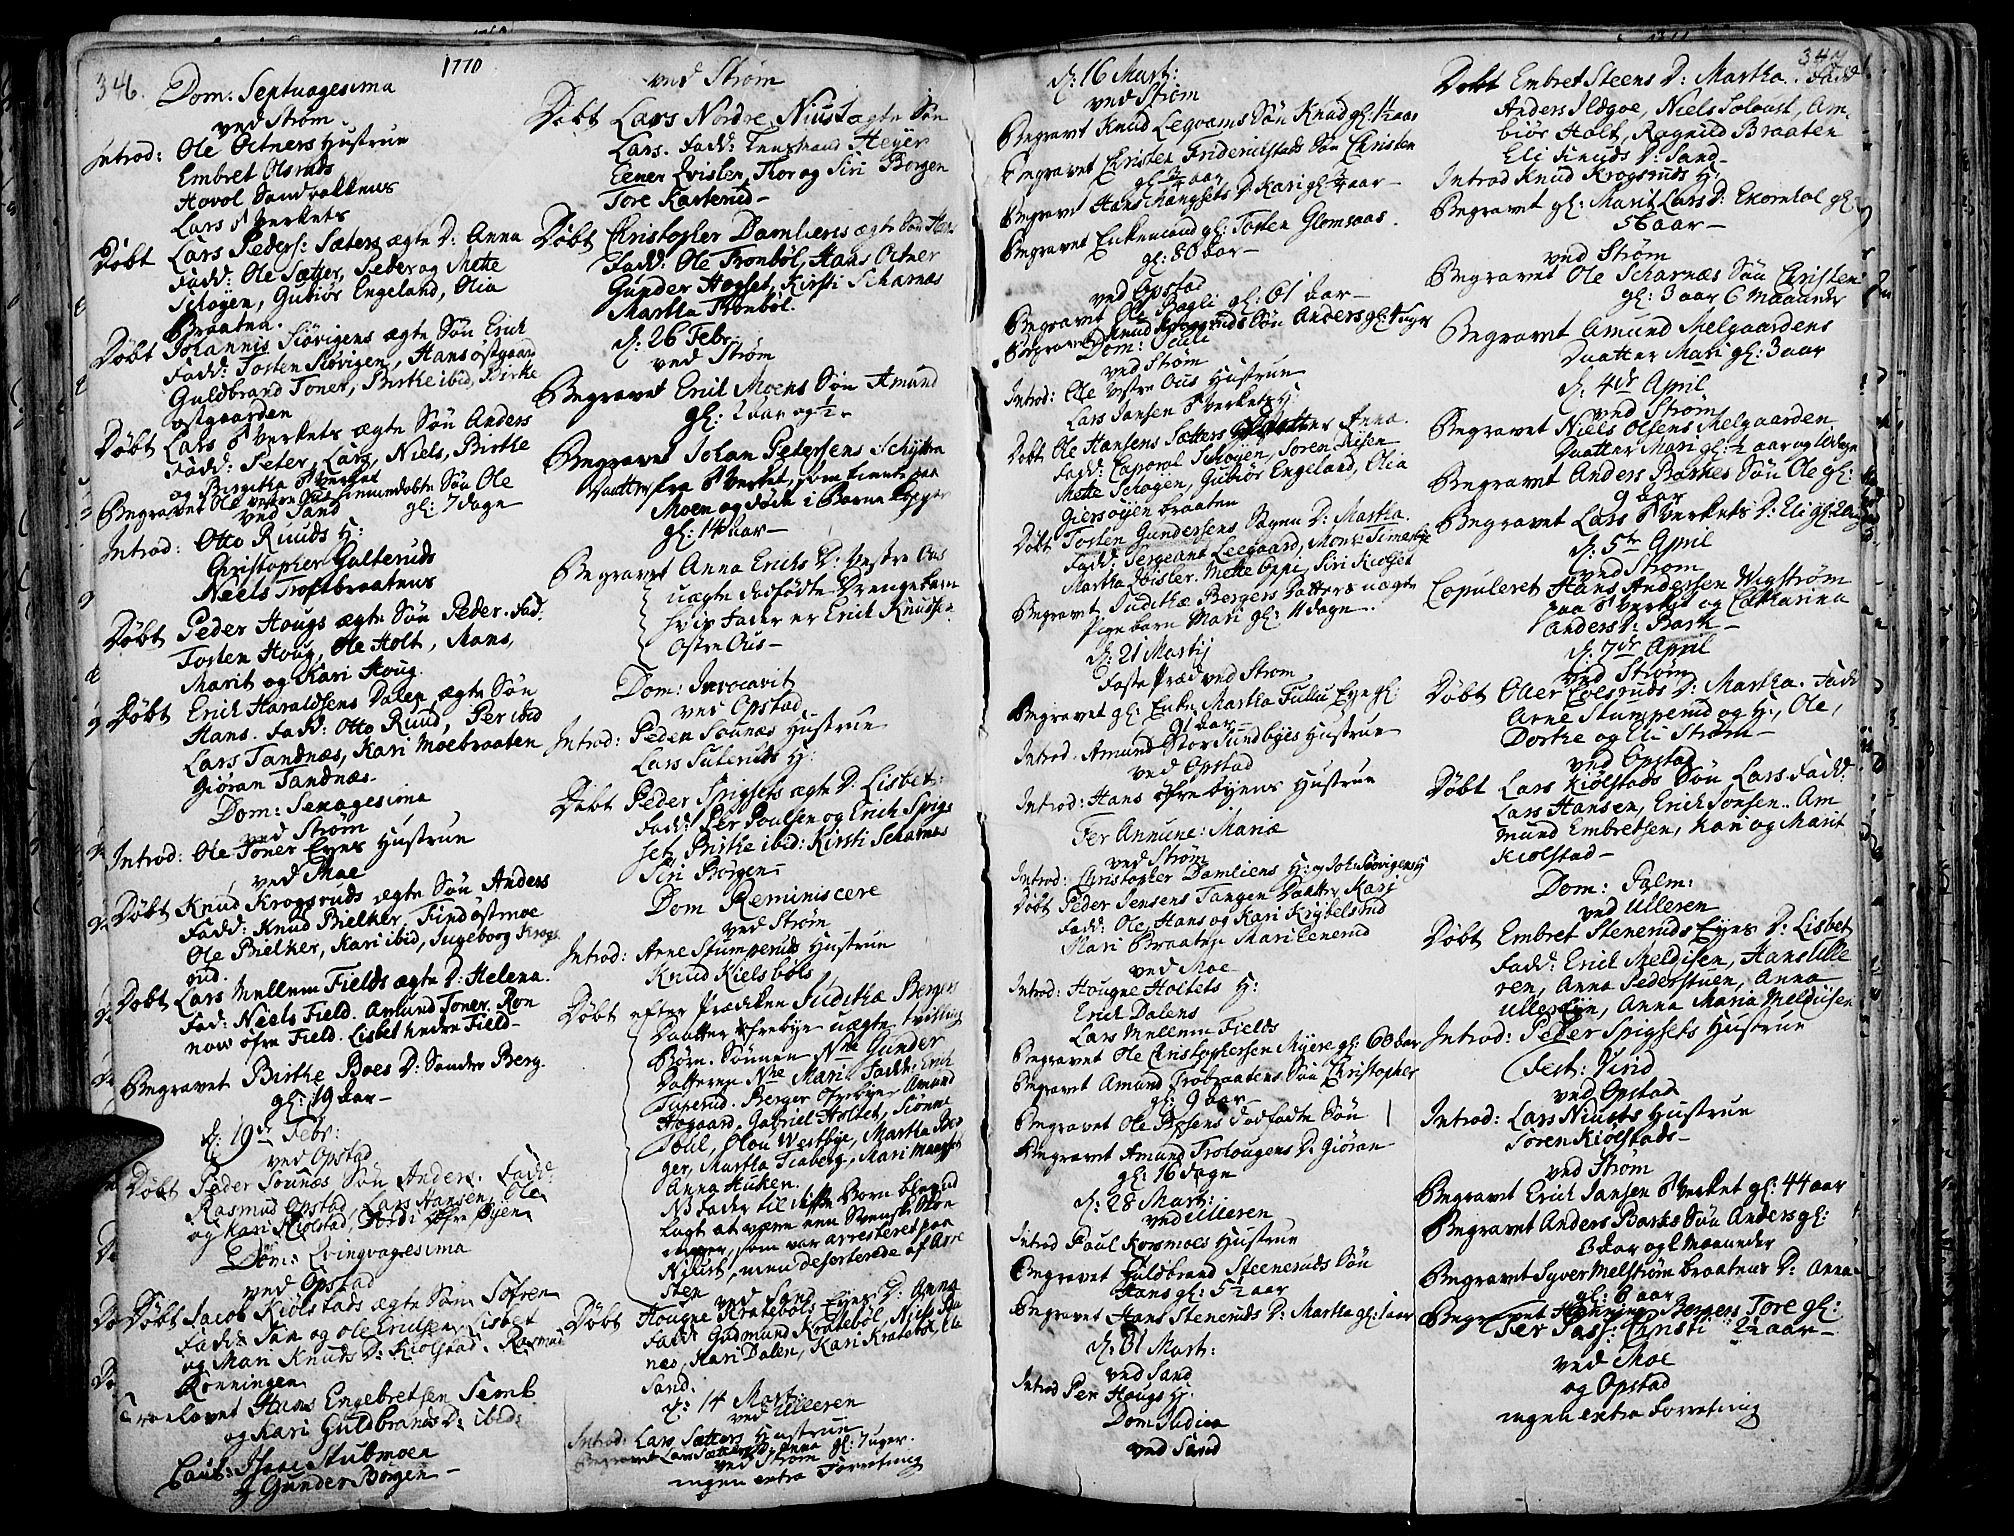 346.
1770
Dom: Septuagesima
ved Strøm
Introd: Ole Ottners Hustrue
Embret Olsruds
Hovol Sandbakkens
Lars Verkets
Døbt Lars Peders: Sæters ægte D: Anna
Fadd: Ole Sætter, Peder og Mette
Schogen, Gubiør Engeland, Olia
Braaten.
Døbt Johannis Siøvigens ægte Søn Erich
Fadd: Tosten Siøvigen, Hans østgaard
Guldbrand Toner, Birthe ibid, Birthe
østgaarden
Døbt Lars Verkets ægte Søn Anders
Fadd: Peter, Lars, Niels, Birthe
og Birgitha Verket
Begravet Ole vestre Ous hiemedøbte Søn Ole
gl: 7 dage
ved Sand
Introd: Otto Ruuds H:
Christopher Galteruds
Neels Troftbraatens
Døbt Peder Hougs ægte Søn Peder. Fad.
Tosten Houg, Ole Holt, Hans,
Marit og Kari Houg.
Døbt Erich Haraldsens Dalen ægte Søn
Hans. Fadd: Otto Ruud, Per ibid
Lars Tandnæs, Kari Moebraaten
Giøran Tandnæs.
Dom: Sexagesima
ved Strøm
Introd: Ole Toner Eyes Hustrue
ved Moe
Døbt Knud Krogsruds ægte Søn Anders
Fadd: Knud Bielker, Find østmoe
Ole Bielker, Kari ibid, Ingeborg Krogs
rud.
Døbt Lars Mellem Fields ægte D: Helena.
Fad: Neels Field. Amund Toner. Ron
now øfre Field. Lisbet nedre Field-
Begravet Birthe Boes D: Sander Berg.
gl: 19 Aar-
d: 19de Febr:
ved Opstad
Døbt Peder Sounæs Søn Anders. Fadd:
Rasmus Opstad, Lars Hansen, Ole
og Kari Kiolstad, Jordi Øfre byen
Dom: Qvinqvagesima
ved Opstad
Døbt Jacob Kiølstads ægte Søn Søfren
Fadd: Jan og Ole Erichsen Lisbet
og Mari Knuds D: Kiolstad. Rasmus
Rønningen
Troelovet Hans Engebretsen Semb
og Kari Guldbrands D: ibid:
Caut: Stubmoen
og Gunder Borgen-
ved Strøm
Døbt Lars Nordre Niust ægte Søn
Lars. Fadd: Heyer
Eener Qvisler, Thor og Siri Borgen
Tore Kasterud-
Døbt Christopher Damliens ægte Søn Hans
Fadd: Ole Tronbøl, Hans Ottner
Gunder Hogset, Kirsti Scharnæs
Martha Tronbøl.
d: 26 Febr.
ved Strøm
Begravet Erich Moens Søn Amund
gl: 2 aar og ½-
Begravet Johan Pedersens
Datter fra Verket, som tiente paa
Moen og døde i Børne Kopper
gl: 14 aar-
Begravet Anna Erichs D: Vestre Ous
uægte dødfødte Drengebarn
hvis Fader er Erich Knudsen
Østre Ous-
Dom: Invocavit
ved Opstad
Introd: Peder Sounæs Hustrue
Lars Suteruds H:
Døbt Peder Spigsets ægte D: Lisbet:
Fadd: Per Poulsen og Erich Spigs
set, Birthe ibid: Kirsti Scharnæs
Siri Borgen-
Dom Reminiscere
ved Strøm
Introd: Arne Stumperuds Hustrue
Knud Kielsbøls
Døbt efter Prædiken Judithæ Berger
Datter Øfrebye uægte tvilling
Børn. Sønnen Nne Gunder
Datteren Nne Mari. Fadd: Erich
Tuperud. Berger Øfrebye. Amund
Hogaard, Gabriel Holtet, Siønne
Boel, Olou Westbye, Martha Ber
ger, Martha Tiaberg, Mari Mangset
Anna Huken.
NB Fader til disse Børn blev ud
lagt at være een Svensk
som var arresteret paa
Niust, men deserterede af Arre
sten
ved Sand
Døbt Hougne Kratebøls Eyes D: Anna
Fadd: Gudmund Kratebøl, Niels
næs, Kari Dalen, Kari Kratebøl,
Sand.
d: 14 Mart:
ved Ulleren
Introd: Lars Sætters Hustrue
Begravet Lars Sætters D: Anna gl: 7 uger.
ved Strøm
ingen extra Forretning
347.
d: 16 Mart:
ved Strøm
Begravet Knud Legoams Søn Knud gl: 1½ aar
Begravet Christen Fridrichstads Søn Christen
gl: ¾ aar
Begravet Hans Mangsets D: Kari gl: ¾ aar-
Begravet Enkemand gl: Tosten Glomsaas.
gl: 80 aar-
ved Opstad
Begravet Ole Bagli gl: 61 aar-
Begravet Knud Krogsruds Søn Anders gl: 4 uger
Dom: Oculi
ved Strøm
Introd: Ole Vestre Ous Hustrue
Lars Jansen Verket H:
Døbt Ole Hansens Sætters Datter Anna.
Fadd: Caporal Schøyen, Søren Risen
Mette Schogen, Gubiør Engeland, Olia
Giersøyen braaten
Døbt Tosten Gundersens Bagen D: Martha.
Fadd: Sergeant Leegaard,
Martha Qvisler. Mette Oppi, Siri Kiolset
Begravet Judithæ Bergers Datters uægte
Pigebarn Mari gl: 11 dage.
d: 21 Martij
Faste Præd ved Strøm
Begravet gl: Enke Martha Fulu Eye gl:
91 aar-
Introd. Amund Stor Sundbyes Hustrue
ved Opstad
Introd: Hans Øfre byens Hustrue
Fer Annunc: Mariæ
ved Strøm
Introd: Christopher Damliens H: og Joh: Siøvigens H
Døbt Peder Jensens Tangen Datter Kari
Fadd: Ole, Hans og Kari Krybelsrud
Mari Braaten Mari Eenerud
ved Moe
Introd: Hougne Holtets H:
Erich Dalens
Lars Mellem Fields
Begravet Ole Christophersen Myere gl: 60 aar
Begravet Amund Trobraatens Søn Christopher
gl: 9 aar
Begravet Ole dødfødte Søn
Begravet Amund Trolougens D: Giøran
gl: 16 dage
d: 28 Mart:
ved Ulleren
Introd Paul Korsmoes Hustrue
Begravet Guldbrand Steeneruds Søn
Hans gl: 5½ aar
Begravet Hans Steneruds D: Martha gl: 1 aar
d: 31 Mart:
ved Sand
Introd Per Hougs H.
Dom Judica
ved Sand
Døbt Embret Steens D: Martha. Fadd
Anders Ildgoe, Niels Am-
biør Holt, Ragnild Braaten
Eli Knuds D: Sand-
Introd Knud Krogsruds H:
Begravet gl: Marit Lars D: Ekornhol gl:
56 aar-
ved Strøm
Begravet Ole Scharnæs Søn Christen
gl: 3 aar 6 Maaneder
Begravet Amund Melgaardens
Daatter Mari gl: 3 aar
d. 4de April
ved Strøm
Begravet Niels Olsens Melgaarden
Daatter Mari gl: ½ aar og
Begravet Anders Barkes Søn Ole gl:
9 aar
Begravet Lars Verkets D: Eli gl:
d. 5te April
ved Strøm
Copuleret Hans Andersen Wigstrøm
paa Verket og Catharina
Anders D: Bark-
d. 7de April
ved Strøm
Døbt Oller D: Martha. Fadd
Arne Stumperud og H:, Ole,
Dorthe og Eli Strøm-
ved Opstad
Døbt Lars Kiølstads Søn Lars Fadd:
Lars Hansen, Erich Jonsen. Am
mund Embretsen, Kari og Marit
Kiolstad-
Dom: Palm:
ved Ulleren
Døbt Embret Steneruds Eyes D: Lisbet
Fadd: Erich Meldisen, Hans Ulle
ren, Anna Pederstuen, Anna
Anna Maria Meldiisen
Introd: Peder Spigsets Hustrue
Fest: Virid
ved Opstad
Introd: Lars Niusts Hustrue
Søren Kiolstads-
ved Strøm
Begravet Erich Jansen Verket gl: 44 aar
Begravet Anders Barks Søn Anders gl:
3 aar og Maaneder
Begravet Syver Melstrøm braatens D: Anna
gl: 8 aar
Begravet Henning Borgers Tore gl:
2½ aar-
Fer Pass: Christi
ved Moe
og Opstad
ingen extra Forretning